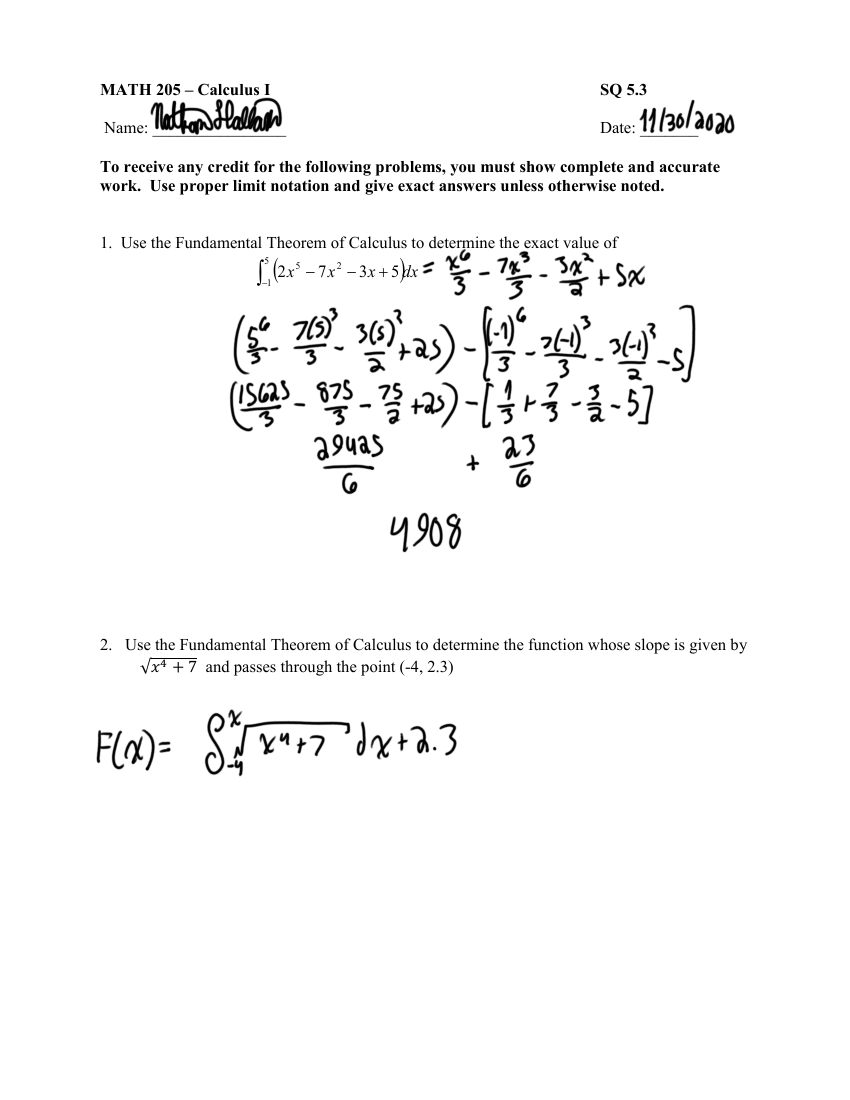 MATH 205 – Calculus I SQ 5.3
Name: Nathan Hallam Date: 11/30/2020
To receive any credit for the following problems, you must show complete and accurate
work. Use proper limit notation and give exact answers unless otherwise noted.
1. Use the Fundamental Theorem of Calculus to determine the exact value of
∫₋₁⁵ (2x⁵ − 7x² − 3x + 5)dx = x⁶/3 − 7x³/3 − 3x²/2 + 5x
(5⁶/3 − 7(5)³/3 − 3(5)²/2 + 25) − [(-1)⁶/3 − 7(-1)³/3 − 3(-1)²/2 − 5]
(15625/3 − 875/3 − 75/2 + 25) − [1/3 + 7/3 − 3/2 − 5]
29425/6 + 23/6
4908
2. Use the Fundamental Theorem of Calculus to determine the function whose slope is given by
√(x⁴ + 7) and passes through the point (-4, 2.3)
F(x) = ∫₋₄ˣ √(x⁴+7) dx + 2.3